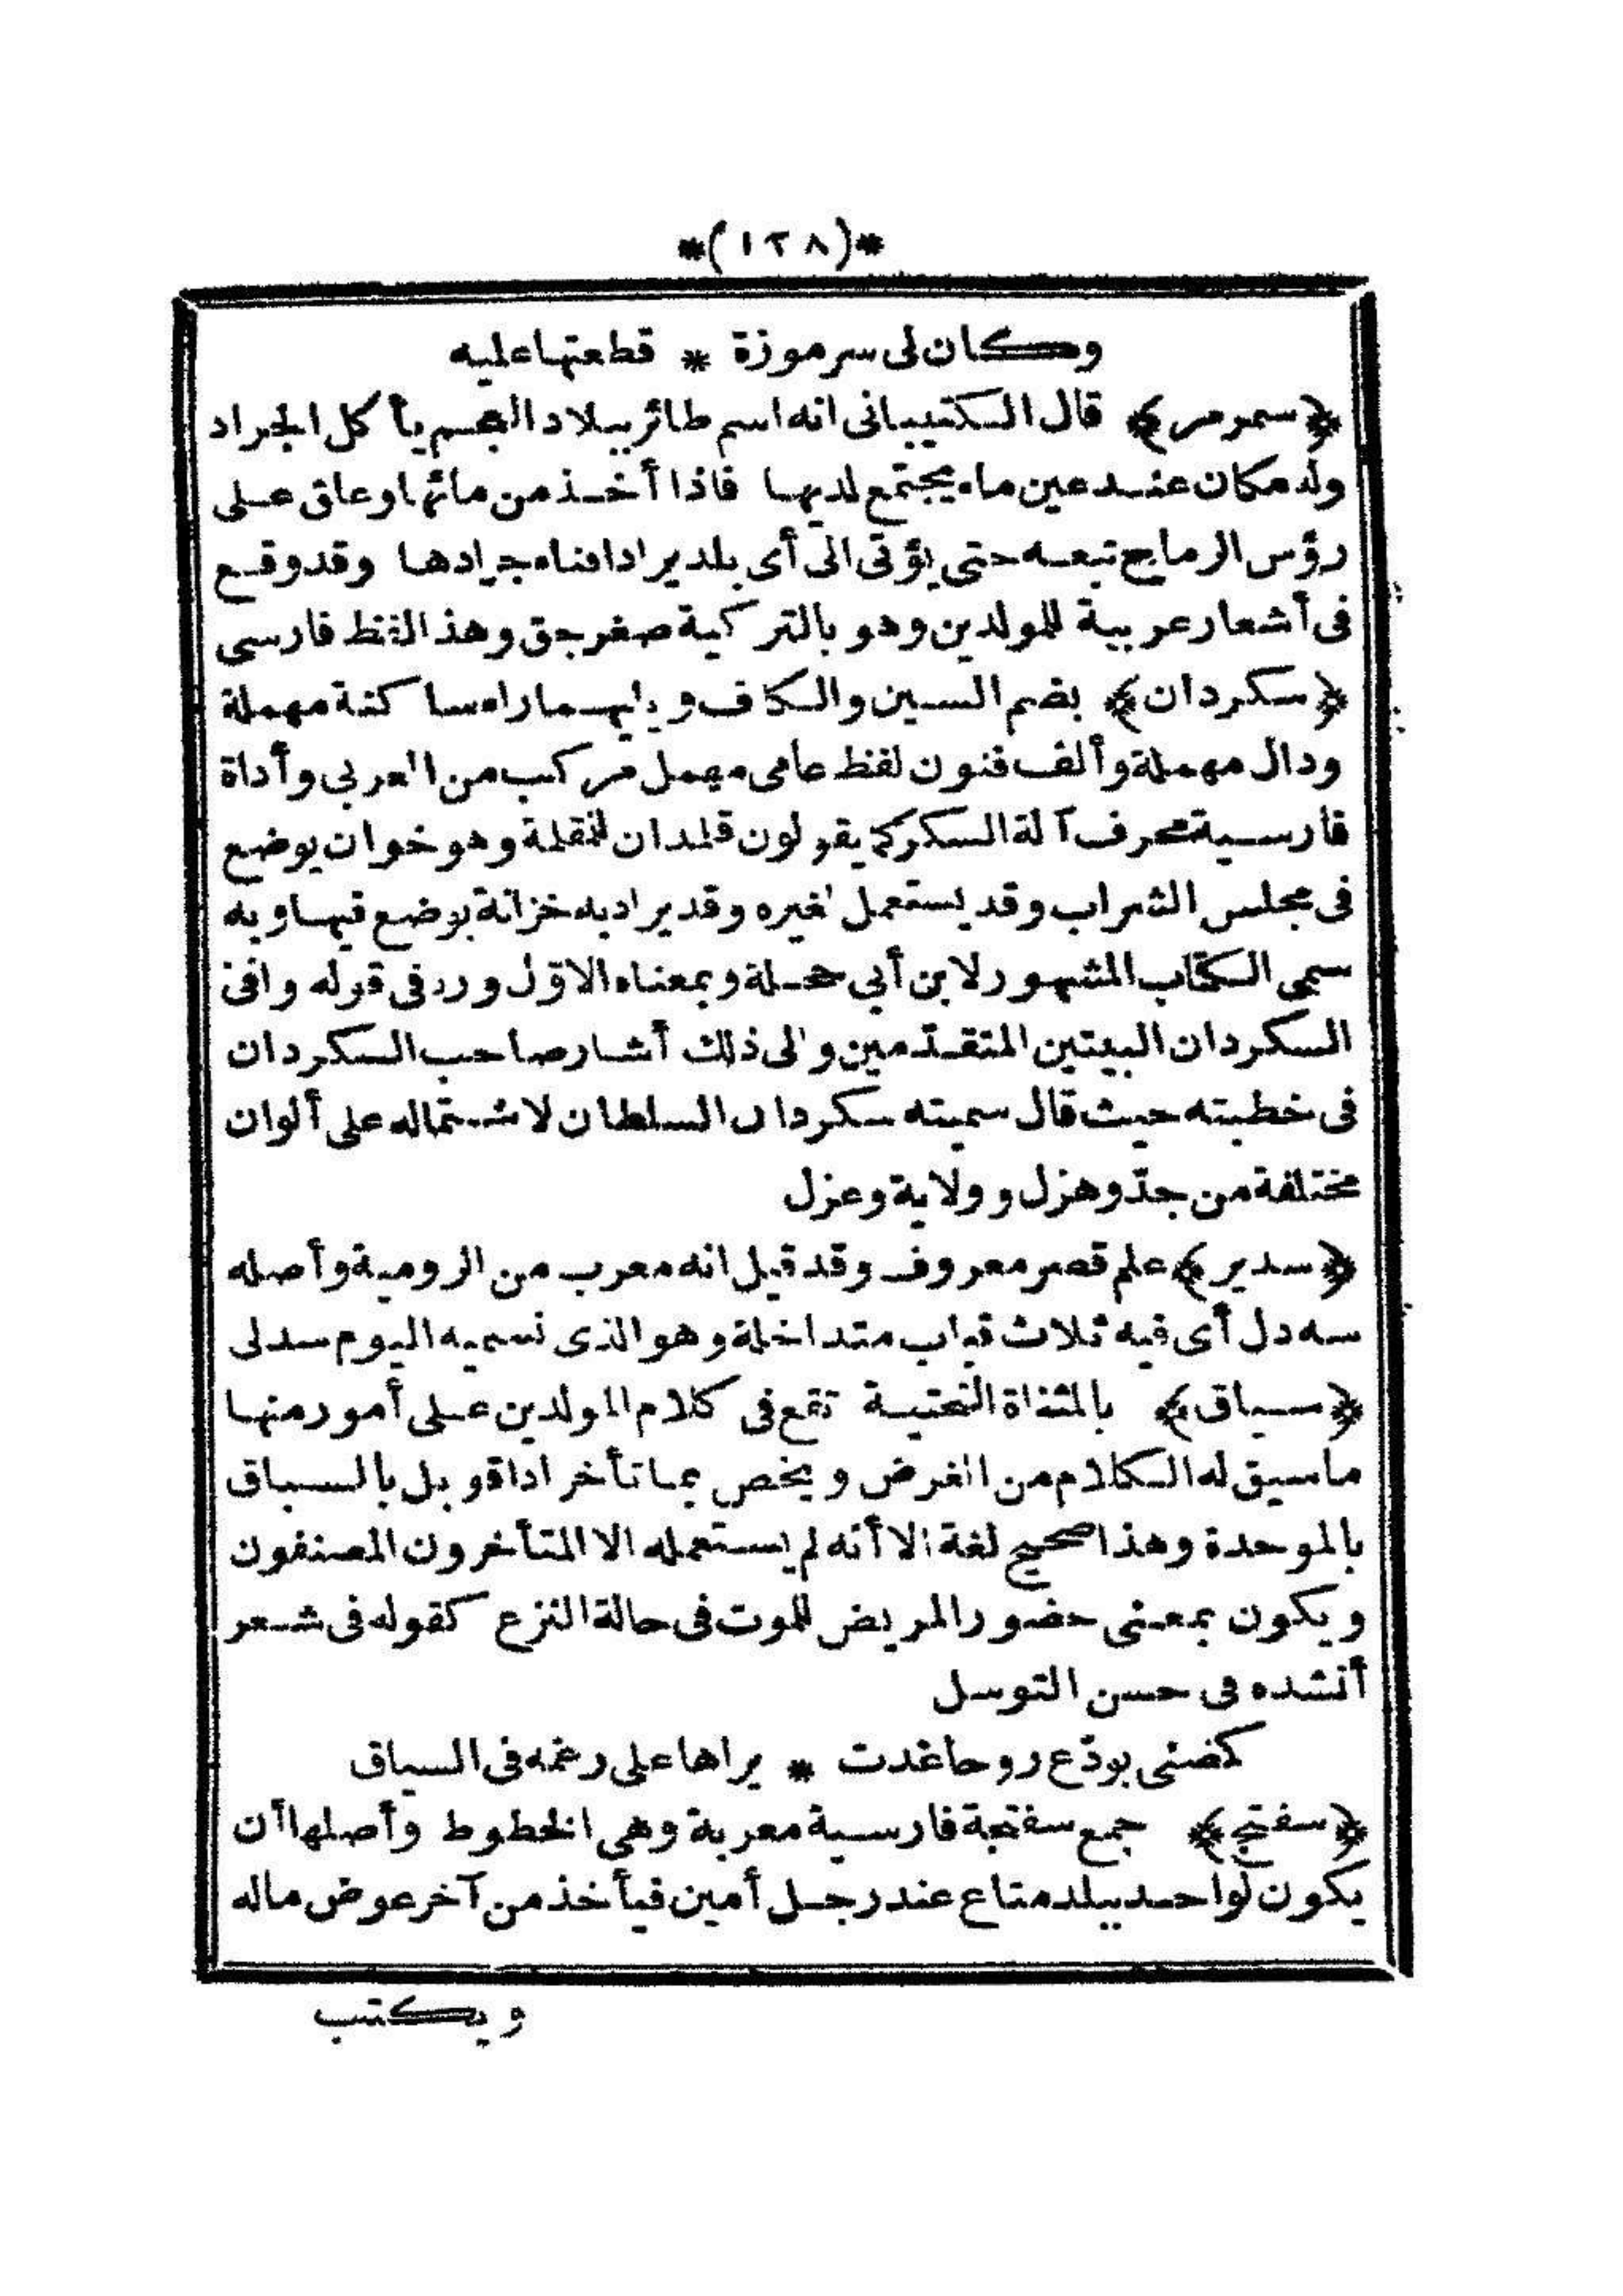 *(١٢٨)*
وكان لى سرموزة * قطعتها عليه
﴿سمرمر﴾ قال الكتيبانى انه اسم طائر ببلاد العجم يأكل الجراد
وله مكان عند عين ماء يجتمع لديها فاذا أخذ من مائها وعاق على
رؤس الرماح تبعه حتى يؤتى الى أى بلد يراد افناء جرادها وقد وقع
فى أشعار عربية للمولدين وهو بالتركية صغرجق وهذ اللفظ فارسى
﴿سكردان﴾ بضم السين والكاف ويليهما راء ساكنة مهملة
ودال مهملة وألف فنون لفظ عامى مهمل مركب من العربى وأداة
فارسية محرف آلة السكر كما يقولون قلمدان للمقلمة وهو خوان يوضع
فى مجلس الشراب وقد يستعمل لغيره وقد يراد به خزانة يوضع فيها وبه
سمى الكتاب المشهور لابن أبى حجلة وبمعناه الاوّل ورد فى قوله وافى
السكردان البيتين المتقدّمين والى ذلك أشار صاحب السكردان
فى خطبته حيث قال سميته سكردان السلطان لاشتماله على ألوان
مختلفة من جدّ وهزل وولاية وعزل
﴿سدير﴾ علم قصر معروف وقد قيل انه معرب من الرومية وأصله
سه دل أى فيه ثلاث قباب متداخلة وهو الذى نسميه اليوم سدلى
﴿سياق﴾ بالمثناة التحتية تقع فى كلام المولدين على أمور منها
ما سيق له الكلام من الغرض ويخص بما تأخر اداقوبل بالسباق
بالموحدة وهذا صحيح لغة الا أنه لم يستعمله الا المتأخرون المصنفون
ويكون بمعنى حضور المريض للموت فى حالة النزع كقوله فى شعر
أنشده فى حسن التوسل
كمضنى يودّع روحا غدت * يراها على رغمه فى السياق
﴿سفتج﴾ جمع سفتجة فارسية معربة وهى الخطوط وأصلها أن
يكون لواحد ببلد متاع عند رجل أمين فيأخذ من آخر عوض ماله
ويكتب